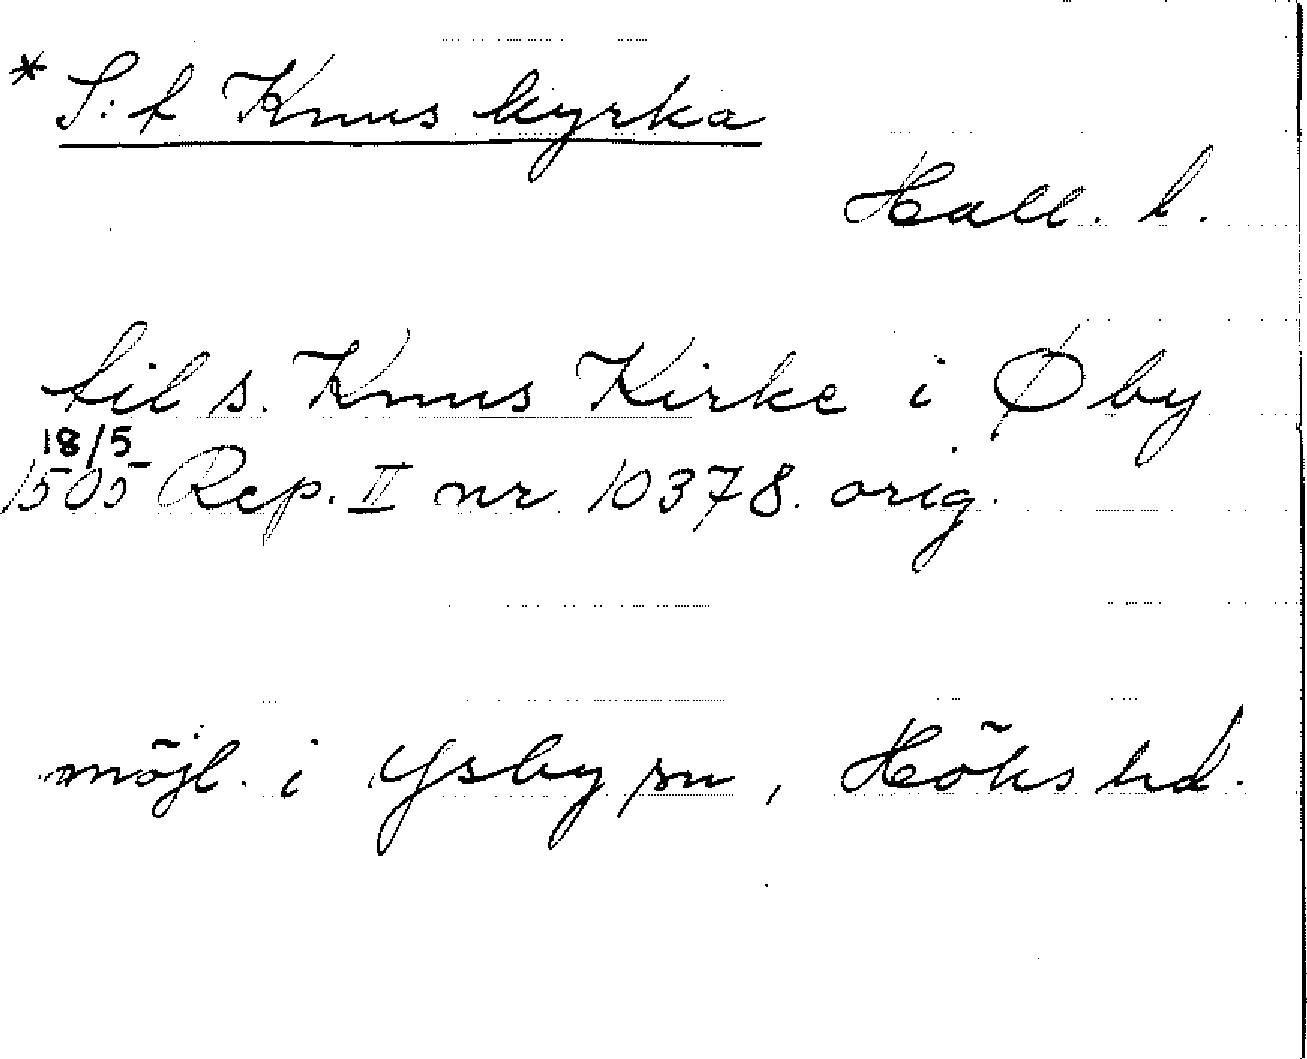 * S:t Knus kyrka
Hall. l.
til s. Knus Kirke i Øby
18/5
1505 Rep. II nr 10378. orig.
möjl. i Ysby sn, Höks hd.